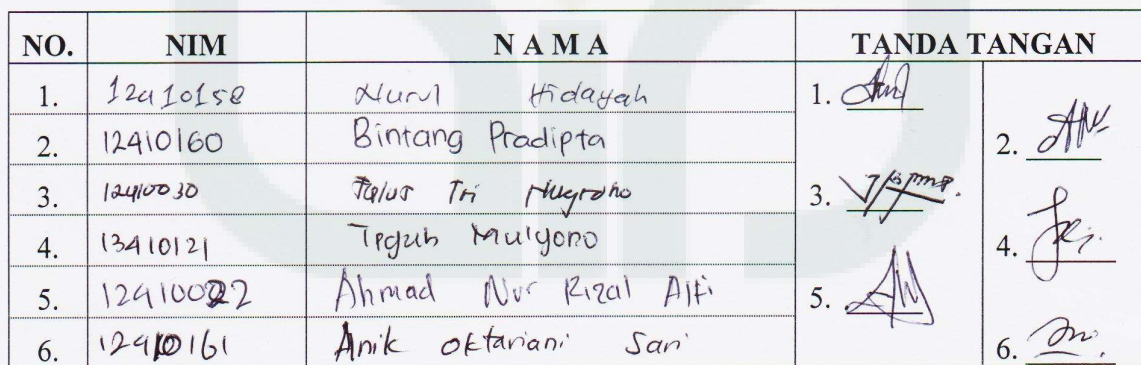 NO. NIM N A M A TANDA TANGAN
1. 12410158 Nurul Hidayah 1.
2. 12410160 Bintang Pradipta 2.
3. 12410030 Tri Nugroho 3.
4. 13410121 Teguh Mulyono 4.
5. 12410022 Ahmad Nur Rizal Alfi 5.
6. 12410161 Anik Oktariani Sari 6.